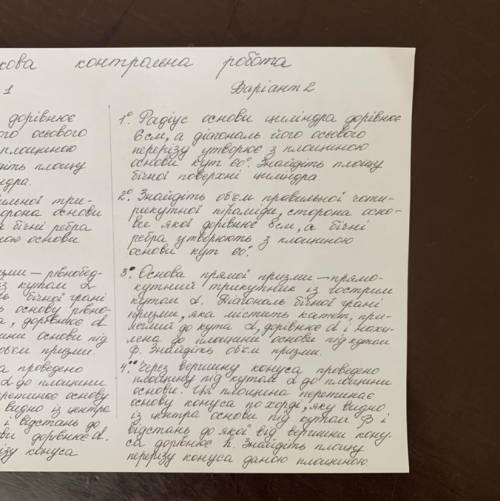 кова контрольна робота
1
дорівнює
ого осьового
площиною
діть площу
ндра.
ильної три-
орона основи
бічні ребра
ною основи
изми — рівнобед-
із кутом α
ль бічної грані
ть основу рівно-
а, дорівнює d
ини основи під
об'єм призми.
а проведено
α до площини
еретинає основу
видно із центра
і відстань до
ови дорівнює d.
різу конуса
Варіант 2
1°. Радіус основи циліндра дорівнює
6 см, а діагональ його осьового
перерізу утворює з площиною
основи кут 60°. Знайдіть площу
бічної поверхні циліндра
2°. Знайдіть об'єм правильної чоти-
рикутної піраміди, сторона осно-
ви якої дорівнює 8 см, а бічні
ребра утворюють з площиною
основи кут 60°.
3°. Основа прямої призми — прямо-
кутний трикутник із гострим
кутом α. Діагональ бічної грані
призми, яка містить катет, при-
леглий до кута α, дорівнює d і нахи-
лена до площини основи під кутом
φ. Знайдіть об'єм призми.
4. Через вершину конуса проведено
площину під кутом α до площини
основи. Ця площина перетинає
основу конуса по хорді, яку видно
із центра основи під кутом β і
відстань до якої від вершини кону-
са дорівнює h. Знайдіть площу
перерізу конуса даною площиною.